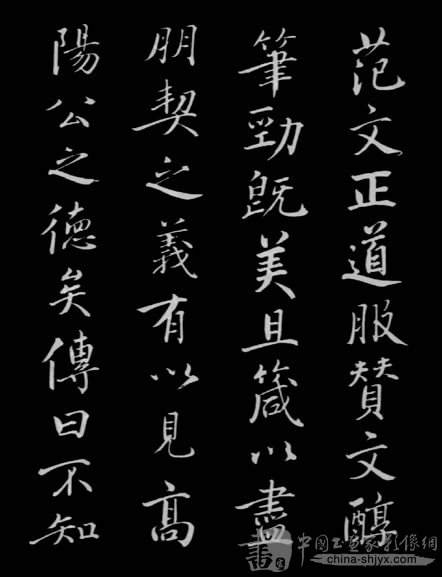 范文正道服赞文醇
筆勁既美且箴以盡
朋契之義有以見高
陽公之德矣傳曰不知
中国书画家影像网
china-shjyx.com